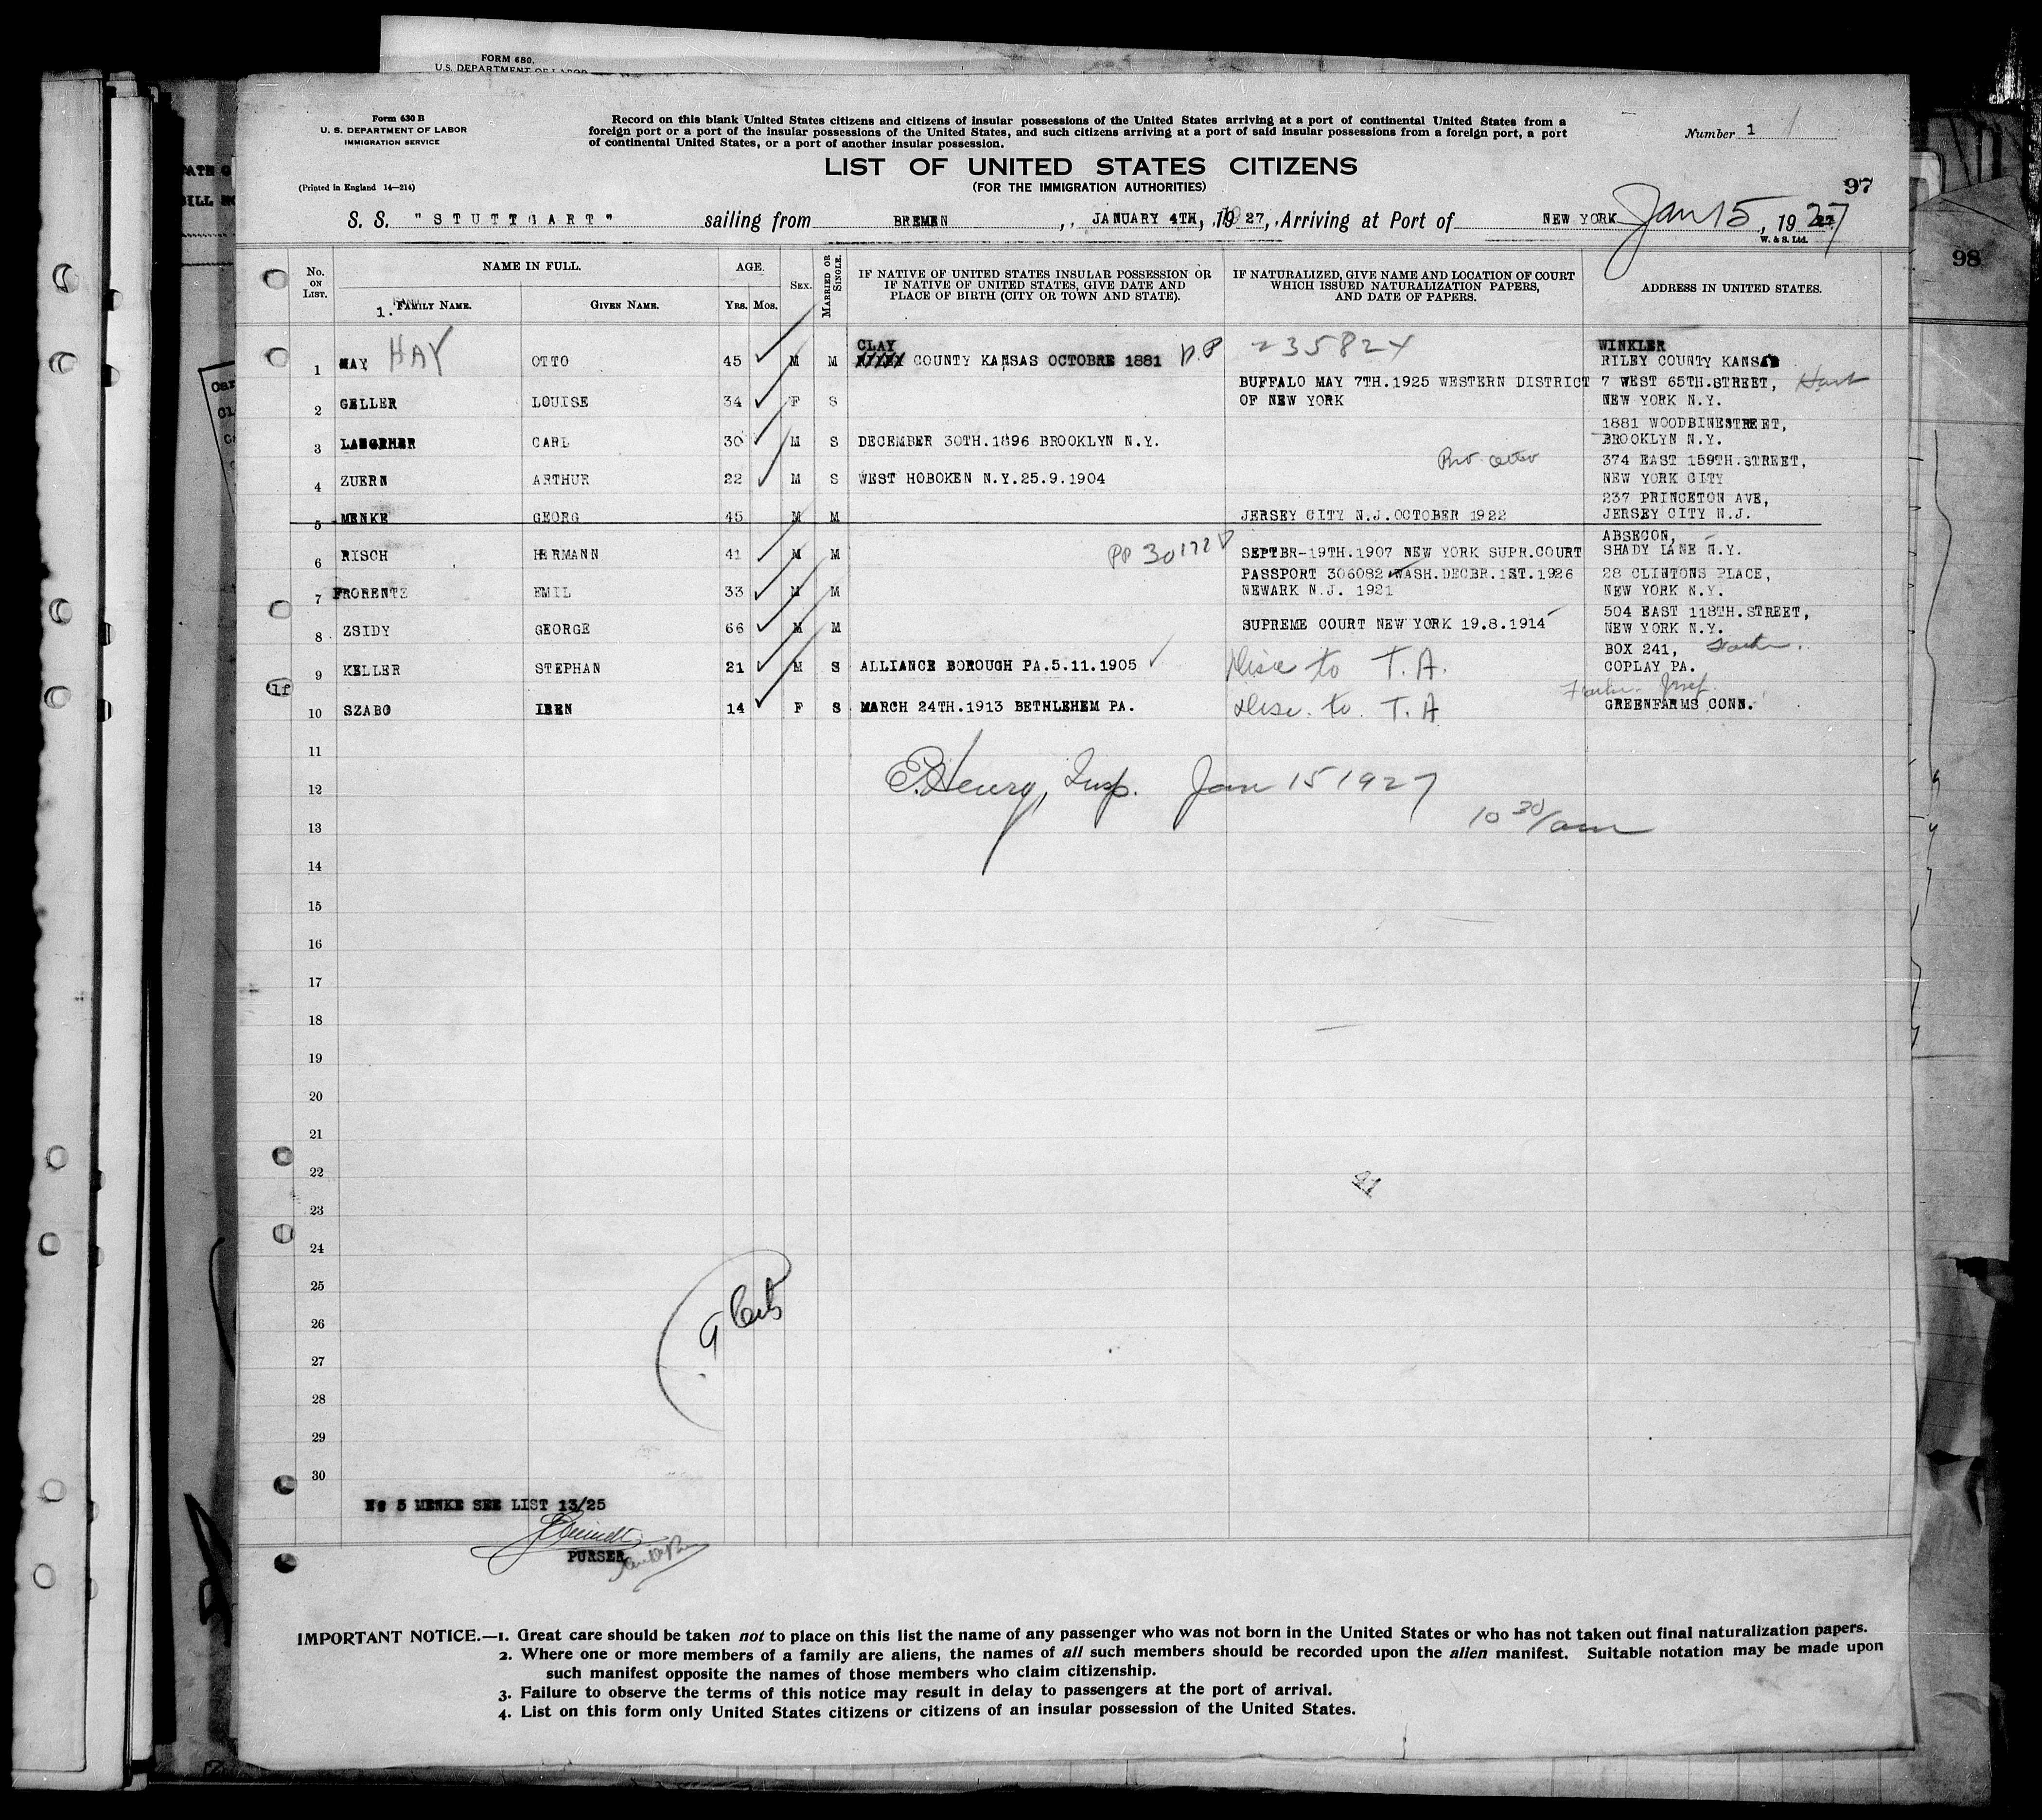 FORM 680.
U.S. DEPARTMENT OF LABOR
Form 630 B
U. S. DEPARTMENT OF LABOR
IMMIGRATION SERVICE
(Printed in England 14—214)
Record on this blank United States citizens and citizens of insular possessions of the United States arriving at a port of continental United States from a
foreign port or a port of the insular possessions of the United States, and such citizens arriving at a port of said insular possessions from a foreign port, a port
of continental United States, or a port of another insular possession.
Number 1
LIST OF UNITED STATES CITIZENS
(FOR THE IMMIGRATION AUTHORITIES)
97
98
S. S. "STUTTGART" sailing from BREMEN, JANUARY 4TH, 1927, Arriving at Port of NEW YORK Jan 15, 1927
W. & S. Ltd.
No. ON LIST.
NAME IN FULL.
1. FAMILY NAME.
GIVEN NAME.
AGE.
Yrs. Mos.
SEX.
MARRIED OR SINGLE.
IF NATIVE OF UNITED STATES INSULAR POSSESSION OR
IF NATIVE OF UNITED STATES, GIVE DATE AND
PLACE OF BIRTH (CITY OR TOWN AND STATE).
IF NATURALIZED, GIVE NAME AND LOCATION OF COURT
WHICH ISSUED NATURALIZATION PAPERS,
AND DATE OF PAPERS.
ADDRESS IN UNITED STATES.
CLAY WINKLER
1 HAY HAY OTTO 45 M M COUNTY KANSAS OCTOBRE 1881 RILEY COUNTY KANSAS
BUFFALO MAY 7TH.1925 WESTERN DISTRICT 7 WEST 65TH.STREET,
2 GELLER LOUISE 34 F S OF NEW YORK NEW YORK N.Y.
1881 WOODBINESTREET,
3 CARL 30 M S DECEMBER 30TH.1896 BROOKLYN N.Y. BROOKLYN N.Y.
374 EAST 159TH.STREET,
4 ZUERN ARTHUR 22 M S WEST HOBOKEN N.Y.25.9.1904 NEW YORK CITY
237 PRINCETON AVE,
5 MENKE GEORG 45 M M JERSEY CITY N.J.OCTOBER 1922 JERSEY CITY N.J.
ABSECON,
6 RISCH HERMANN 41 M M SEPTBR-19TH.1907 NEW YORK SUPR.COURT SHADY LANE N.Y.
PASSPORT 306082 WASH.DECBR.1ST.1926 28 CLINTONS PLACE,
7 FRORENTZ EMIL 33 M M NEWARK N.J. 1921 NEW YORK N.Y.
504 EAST 118TH.STREET,
8 ZSIDY GEORGE 66 M M SUPREME COURT NEW YORK 19.8.1914 NEW YORK N.Y.
BOX 241,
9 KELLER STEPHAN 21 M S ALLIANCE BOROUGH PA.5.11.1905 Disc to T.A. COPLAY PA.
10 SZABO IREN 14 F S MARCH 24TH.1913 BETHLEHEM PA. Disc. to T.A GREENFARMS CONN.
11
12 E. Henry, Insp. Jan 15 1927
13 10 30/am
14
15
16
17
18
19
20
21
22
23
24
25
26
27
28
29
30
No 5 MENKE SEE LIST 13/25
PURSER
IMPORTANT NOTICE.—1. Great care should be taken not to place on this list the name of any passenger who was not born in the United States or who has not taken out final naturalization papers.
2. Where one or more members of a family are aliens, the names of all such members should be recorded upon the alien manifest. Suitable notation may be made upon
such manifest opposite the names of those members who claim citizenship.
3. Failure to observe the terms of this notice may result in delay to passengers at the port of arrival.
4. List on this form only United States citizens or citizens of an insular possession of the United States.